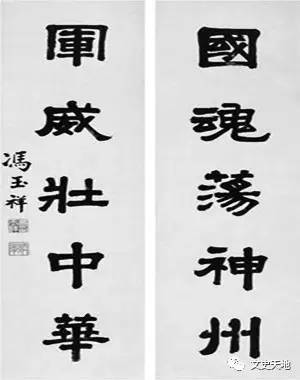 國魂蕩神州
軍威壯中華
馮玉祥
文史天地